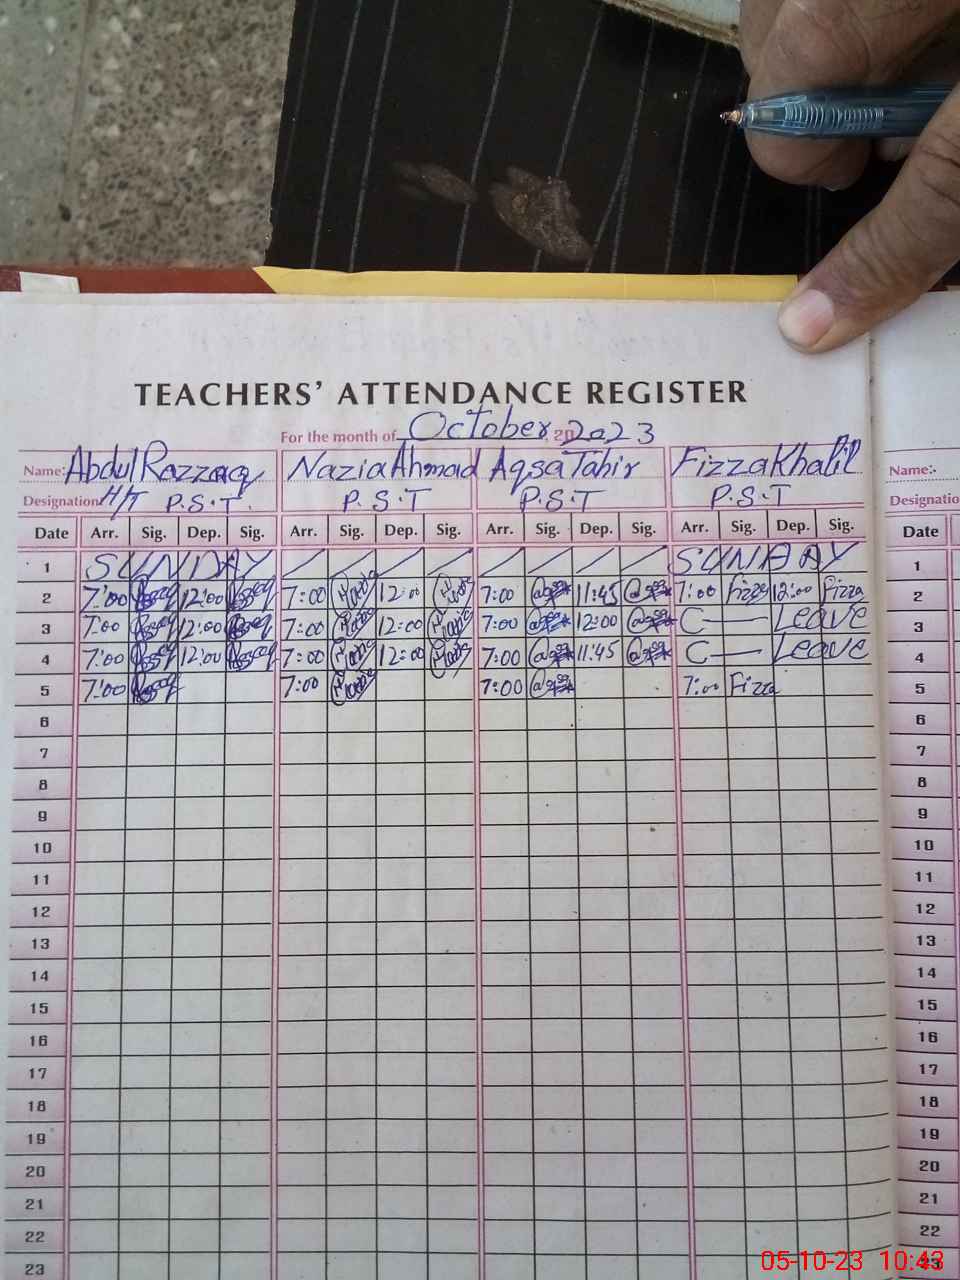 TEACHERS' ATTENDANCE REGISTER
For the month of October, 20 2023
Name: Abdul Razzaq Nazia Ahmad Aqsa Tahir Fizza Khalil Name:
Designation H/T P.S.T. P.S.T P.S.T P.S.T Designatio
Date Arr. Sig. Dep. Sig. Arr. Sig. Dep. Sig. Arr. Sig. Dep. Sig. Arr. Sig. Dep. Sig. Date
1 SUNDAY SUNDAY 1
2 7:00 Razzaq 12:00 Razzaq 7:00 Nazia 12:00 Nazia 7:00 Aqsa 11:45 Aqsa 7:00 Fizza 12:00 Fizza 2
3 7:00 Razzaq 12:00 Razzaq 7:00 Nazia 12:00 Nazia 7:00 Aqsa 12:00 Aqsa C — Leave 3
4 7:00 Razzaq 12:00 Razzaq 7:00 Nazia 12:00 Nazia 7:00 Aqsa 11:45 Aqsa C — Leave 4
5 7:00 Razzaq 7:00 Nazia 7:00 Aqsa 7:00 Fizza 5
6 6
7 7
8 8
9 9
10 10
11 11
12 12
13 13
14 14
15 15
16 16
17 17
18 18
19 19
20 20
21 21
22 22
23 23
05-10-23 10:43